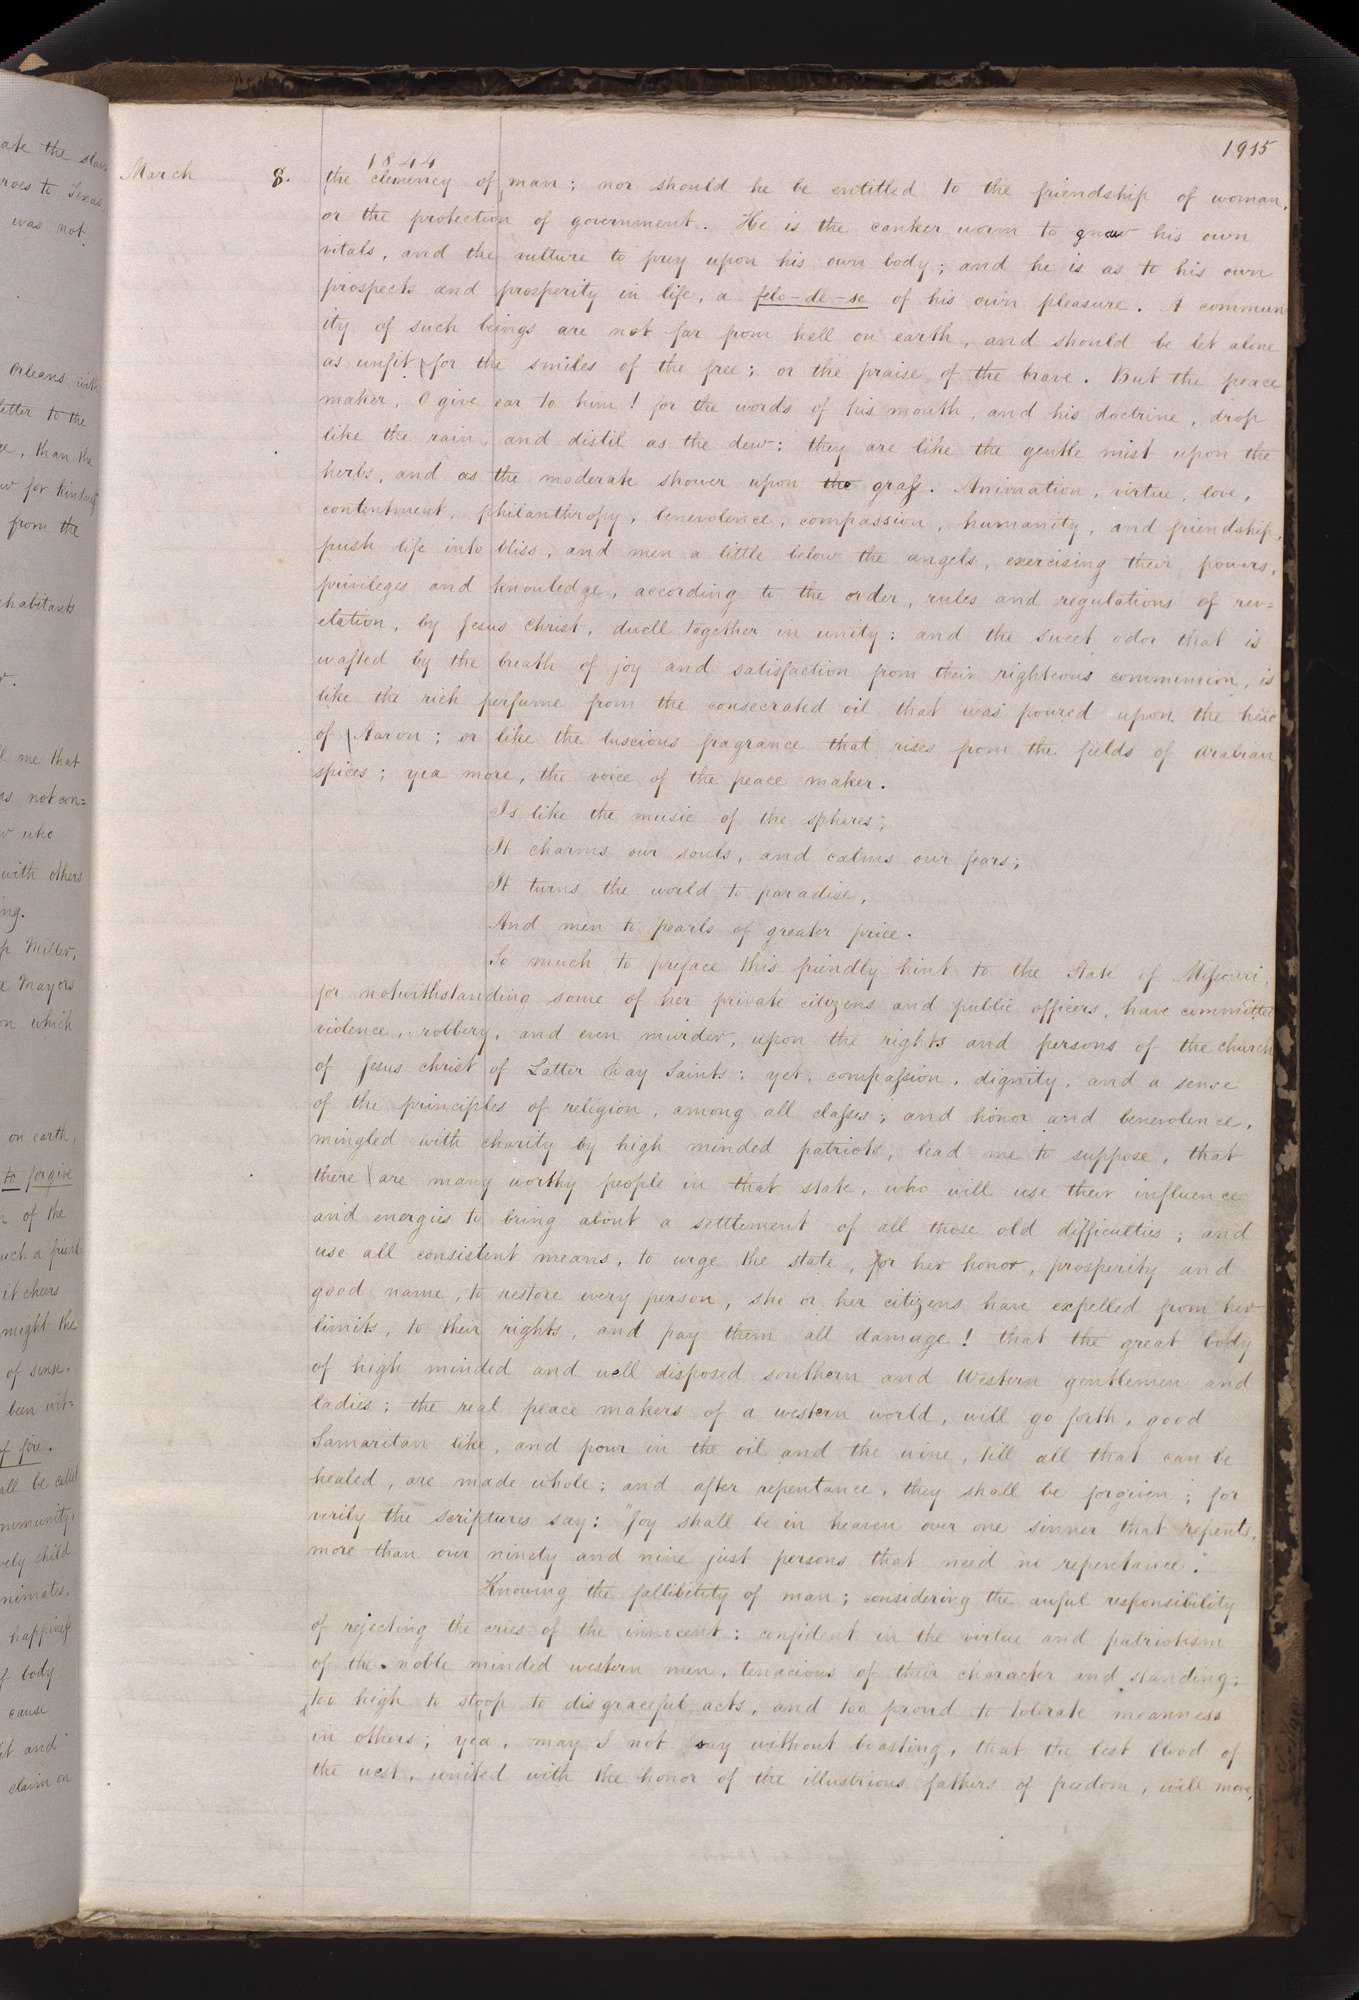 1915
1844
March 8. the clemency of man; nor should he be entitled to the friendship of woman,
or the protection of government. He is the canker worm to gnaw his own
vitals, and the vulture to prey upon his own body; and he is as to his own
prospects and prosperity in life, a felo-de-se of his own pleasure. A commun
ity of such beings are not far from hell on earth, and should be let alone
as unfit for the smiles of the free; or the praise of the brave. But the peace
maker, O give ear to him! for the words of his mouth, and his doctrine, drop
like the rain, and distil as the dew: they are like the gentle mist upon the
herbs, and as the moderate shower upon the grass. Animation, virtue, love,
contentment, philanthropy, benevolence, compassion, humanity, and friendship,
push life into bliss, and men a little below the angels, exercising their powers,
privileges and knowledge, according to the order, rules and regulations of rev=
elation, by Jesus Christ, dwell together in unity: and the sweet odor that is
wafted by the breath of joy and satisfaction from their righteous communion, is
like the rich perfume from the consecrated oil that was poured upon the head
of Aaron; or like the luscious fragrance that rises from the fields of arabian
spices; yea more, the voice of the peace maker.
Is like the music of the spheres;
It charms our souls, and calms our fears;
It turns the world to paradise,
And men to pearls of greater price.
So much to preface this friendly hint to the State of Missouri,
for notwithstanding some of her private citizens and public officers, have committed
violence, robbery, and even murder, upon the rights and persons of the church
of Jesus christ of Latter Day Saints; yet, compassion, dignity, and a sense
of the principles of religion, among all classes; and honor and benevolence,
mingled with charity by high minded patriots, lead me to suppose, that
there are many worthy people in that state, who will use their influence
and energies to bring about a settlement of all those old difficulties; and
use all consistent means, to urge the state, for her honor, prosperity and
good name, to restore every person, she or her citizens have expelled from her
limits, to their rights, and pay them all damage! that the great body
of high minded and well disposed southern and Western gentlemen and
ladies; the real peace makers of a western world, will go forth, good
Samaritan like, and pour in the oil and the wine, till all that can be
healed, are made whole; and after repentance, they shall be forgiven; for
verily the scriptures say: "Joy shall be in heaven over one sinner that repents,
more than over ninety and nine just persons that need no repentance."
Knowing the fallibility of man; considering the awful responsibility
of rejecting the cries of the innocent: confident in the virtue and patriotism
of the noble minded western men, tenacious of their character and standing;
too high to stoop to disgraceful acts, and too proud to tolerate meanness
in others; yea, may I not say without boasting, that the best blood of
the west, united with the honor of the illustrious fathers of freedom, will move,